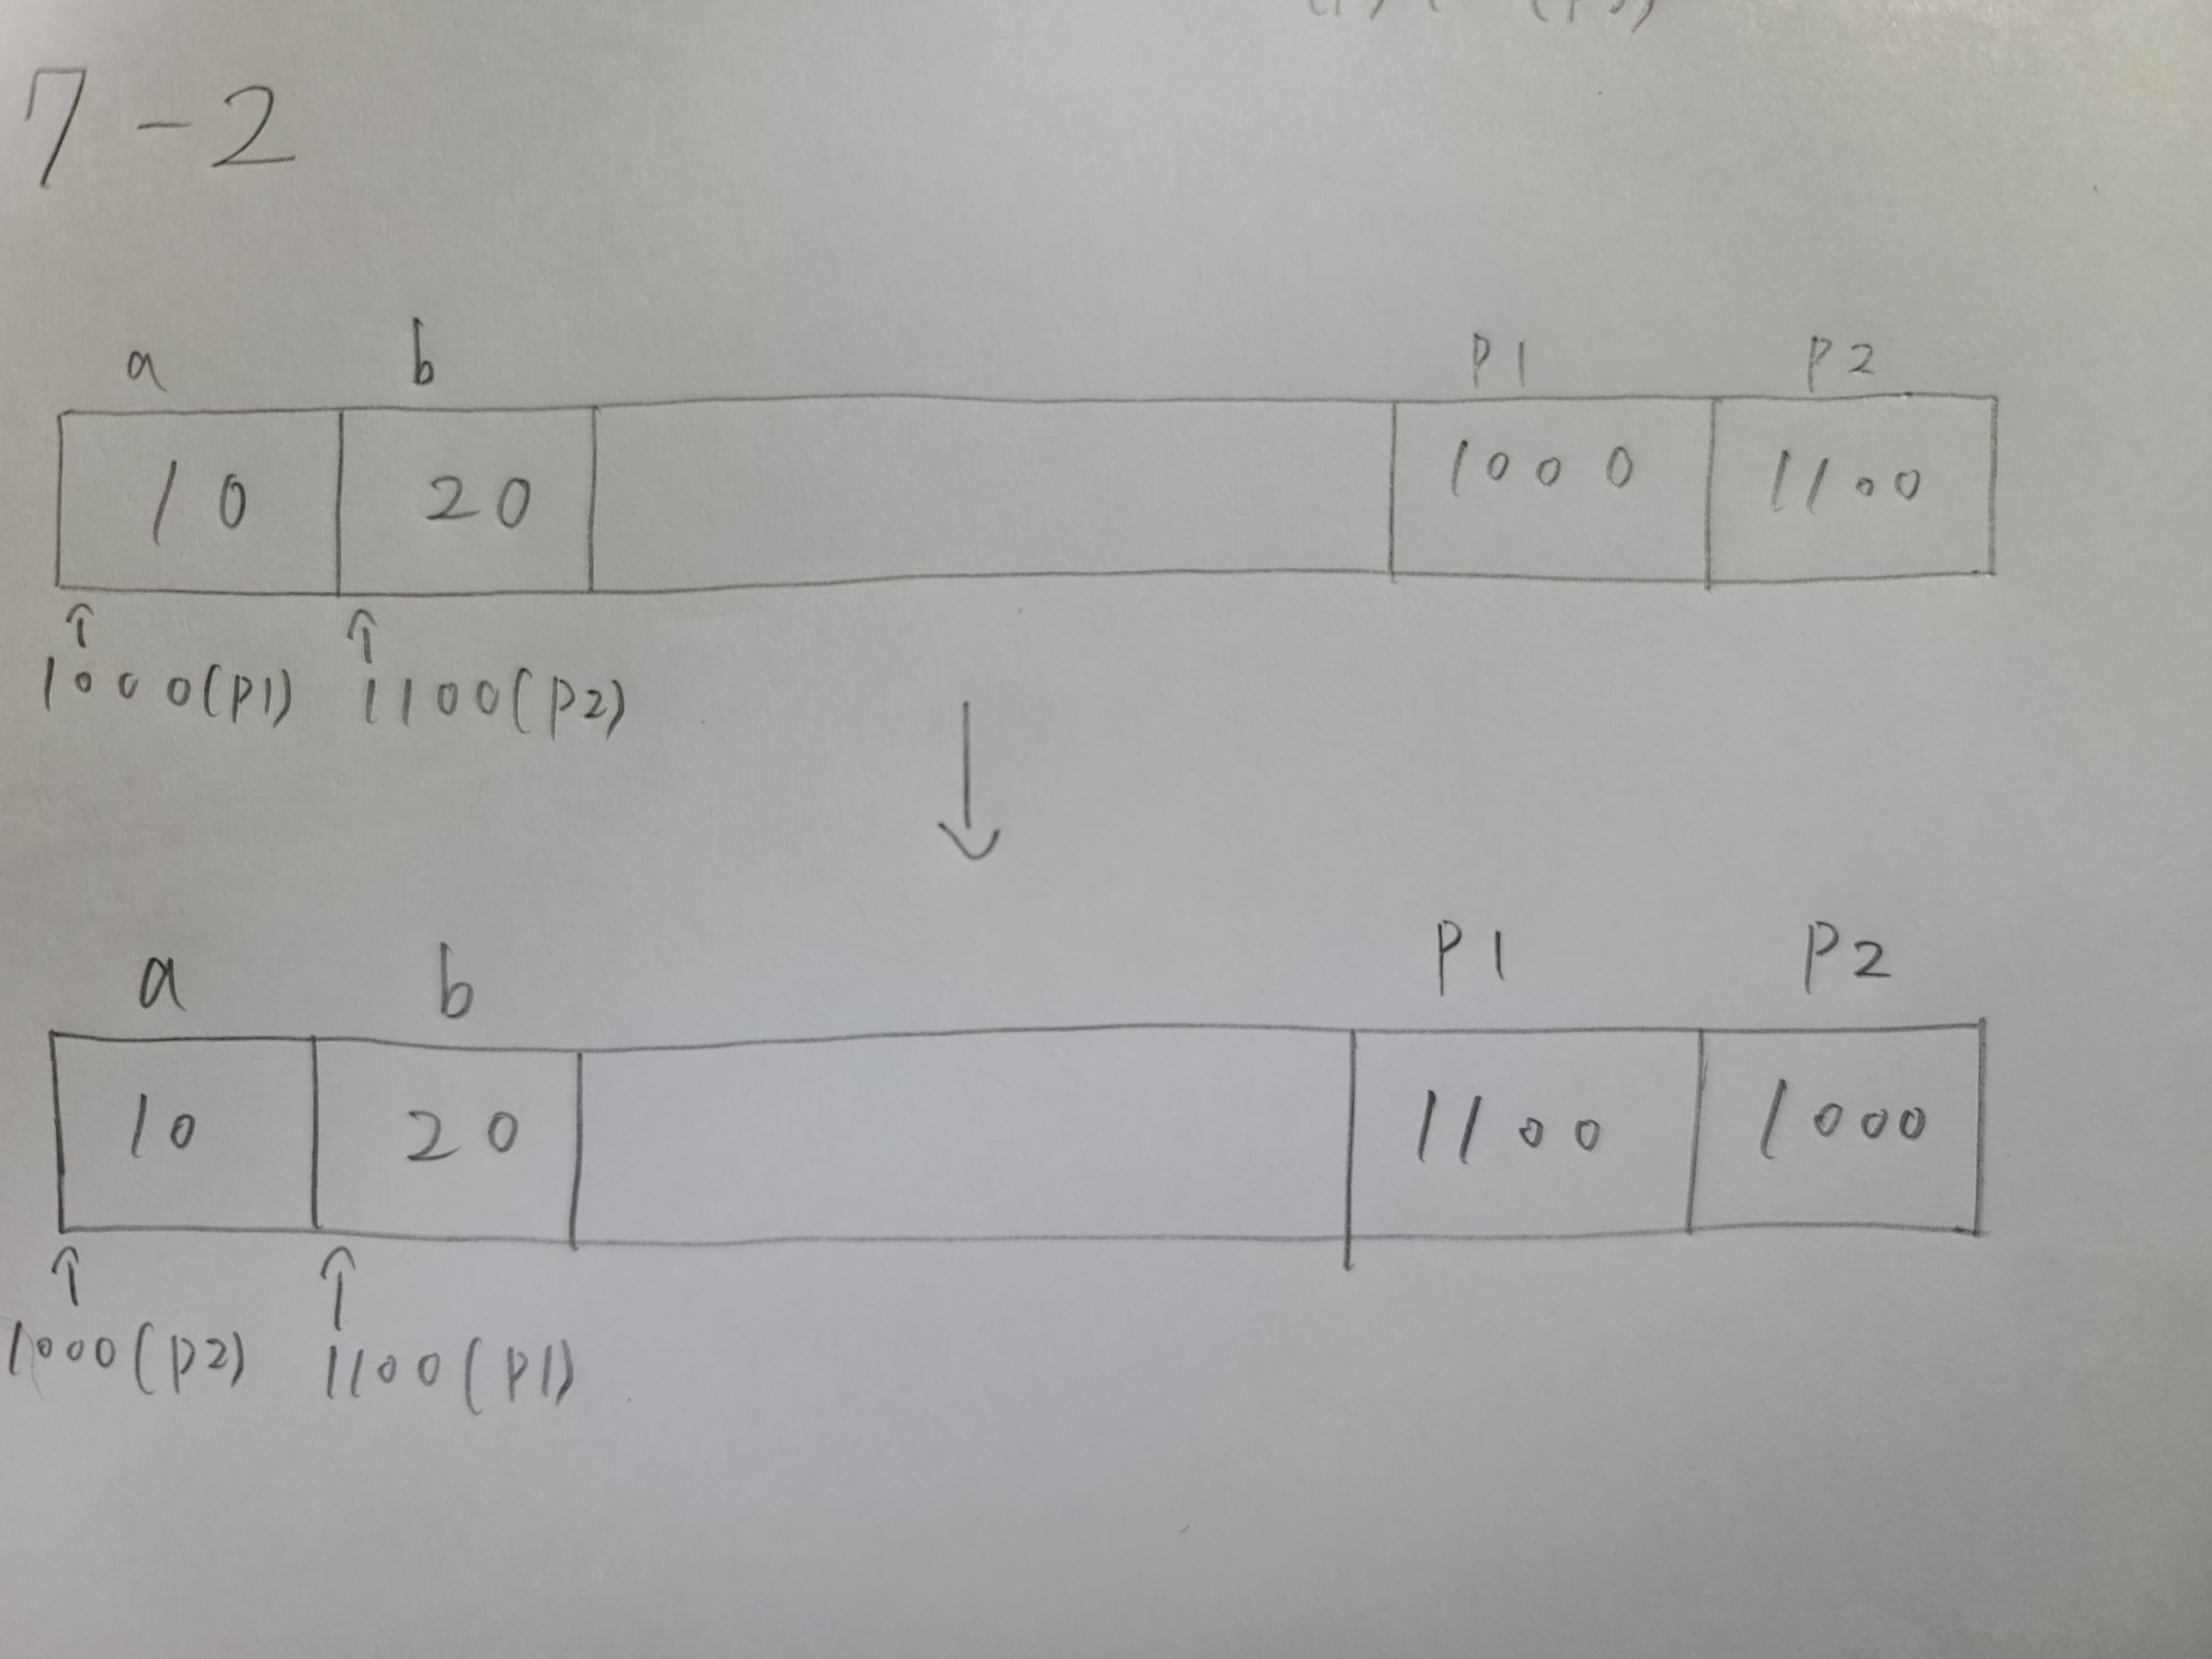 7-2
a b P1 P2
10 20 1000 1100
1000(P1) 1100(P2)
a b P1 P2
10 20 1100 1000
1000(P2) 1100(P1)